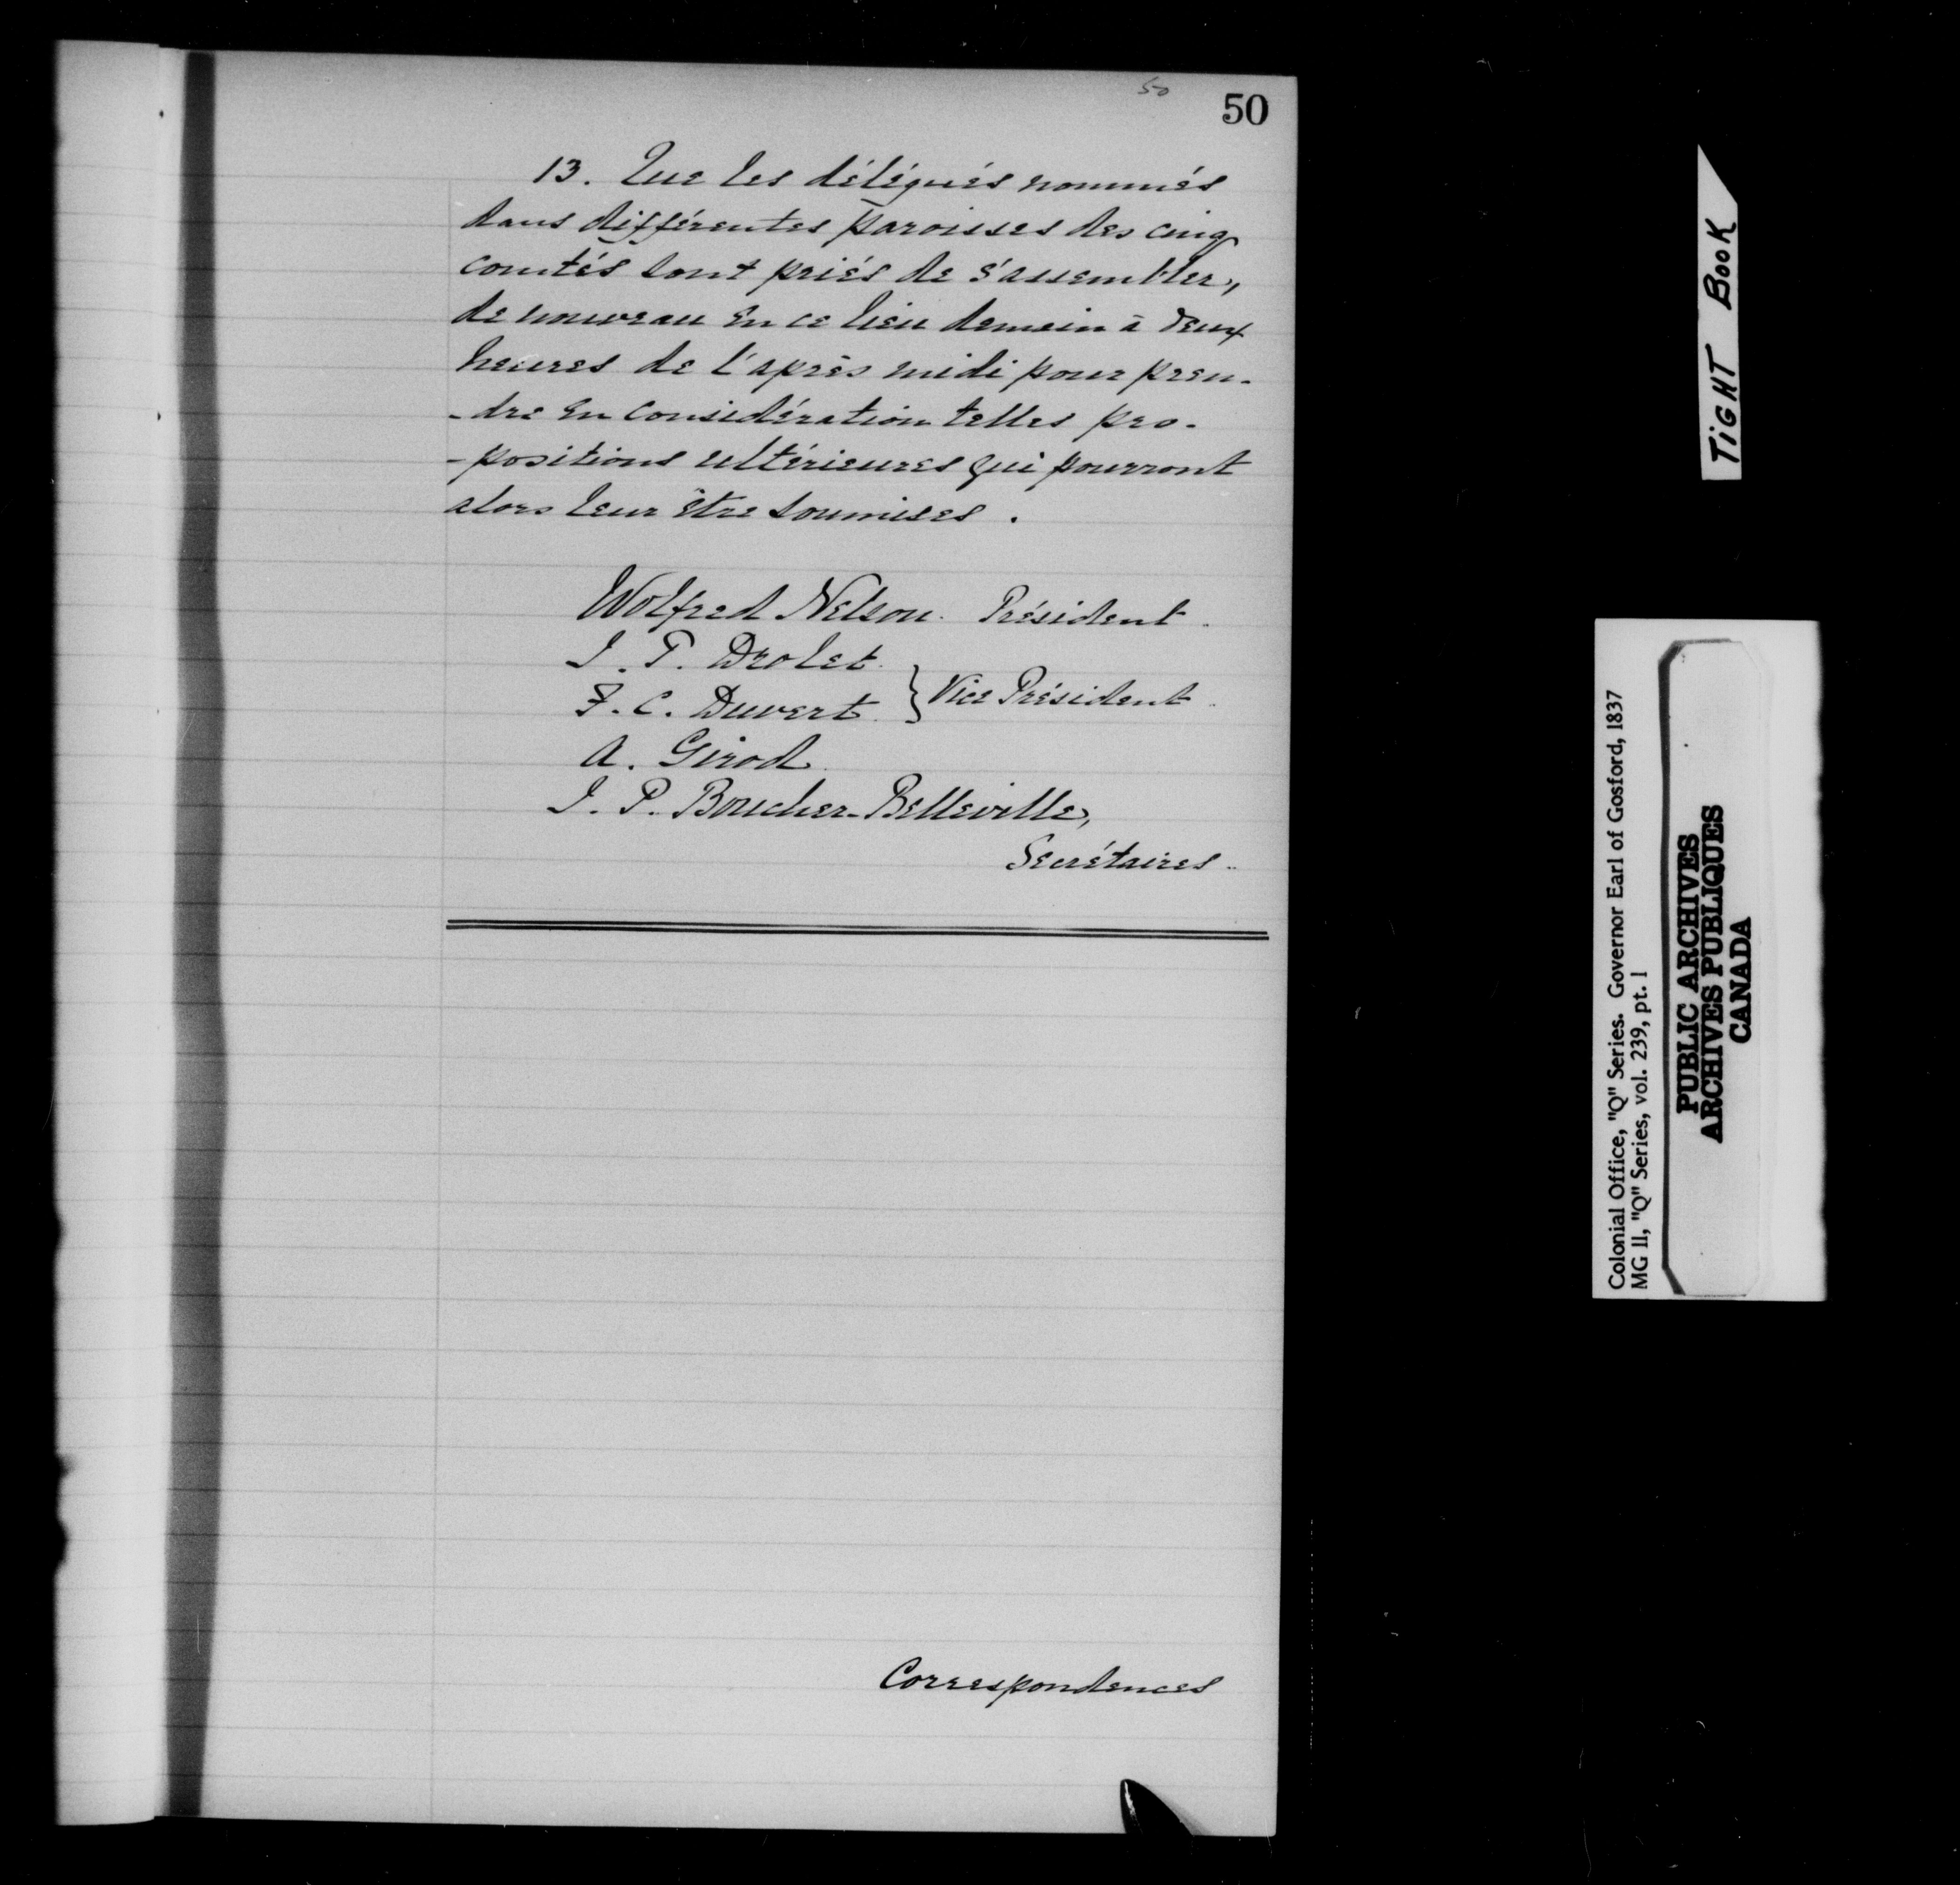 50
50
13. Que les délégués nommés
dans différentes paroisses des cinq
comtés sont priés de s'assembler,
de nouveau en ce lieu demain à deux
heures de l'après midi pour pren-
-dre en considération telles pro-
-positions ultérieures qui pourront
alors leur être soumises.
Wolfred Nelson. Président.
J. T. Drolet.
F. C. Duvert. } Vice Président.
A. Girod
J. P. Boucher-Belleville,
Secrétaires.
Correspondences
TIGHT BOOK
Colonial Office, "Q" Series. Governor Earl of Gosford, 1837
MG 11, "Q" Series, vol. 239, pt. 1
PUBLIC ARCHIVES
ARCHIVES PUBLIQUES
CANADA